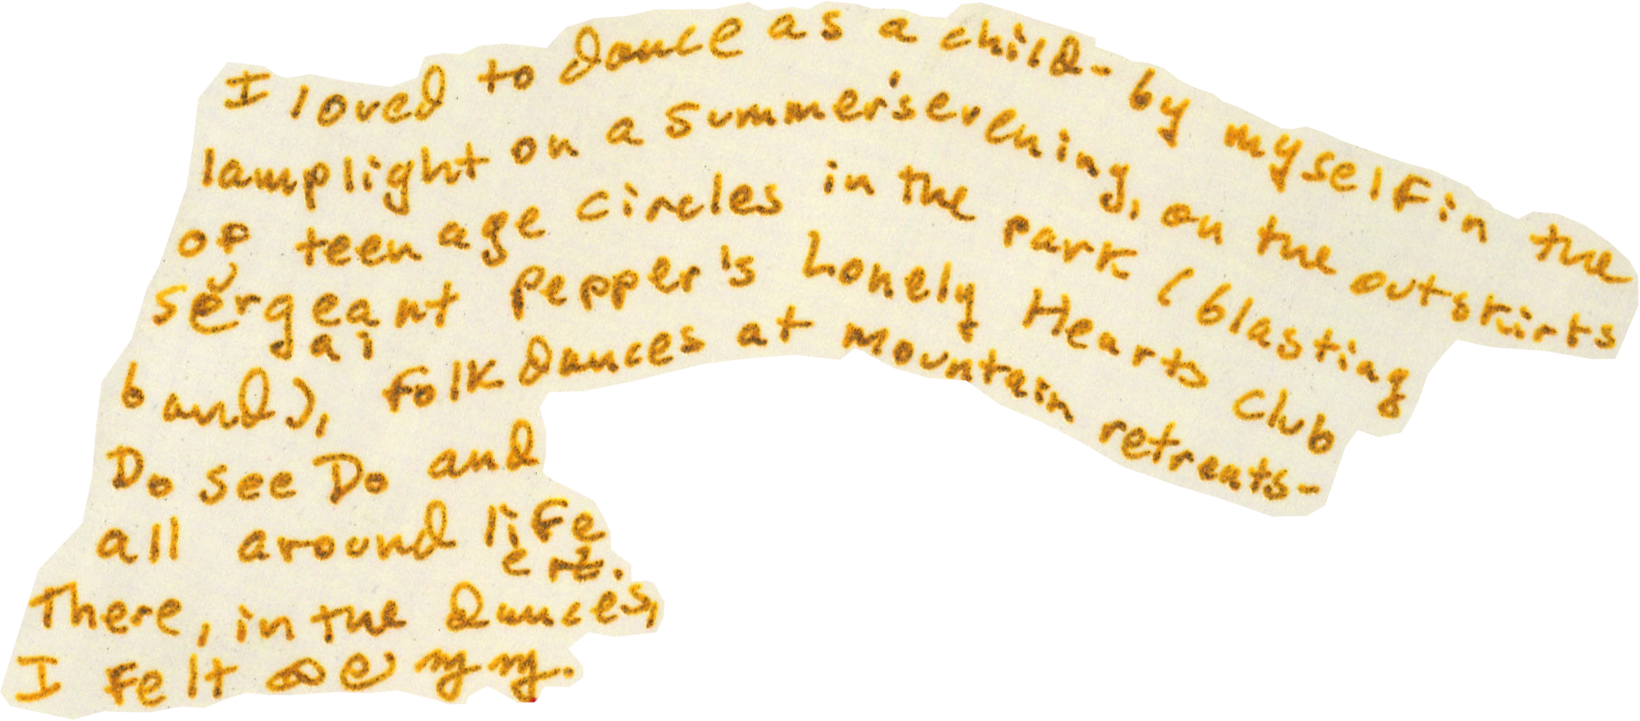 I loved to dance as a child- by myself in the
lamplight on a summer's evening, on the outskirts
of teenage circles in the park (blasting
sergeant Pepper's Lonely Hearts Club
ai
band), folk dances at mountain retreats-
Do see Do and
all around life
There, in the dances,
I felt